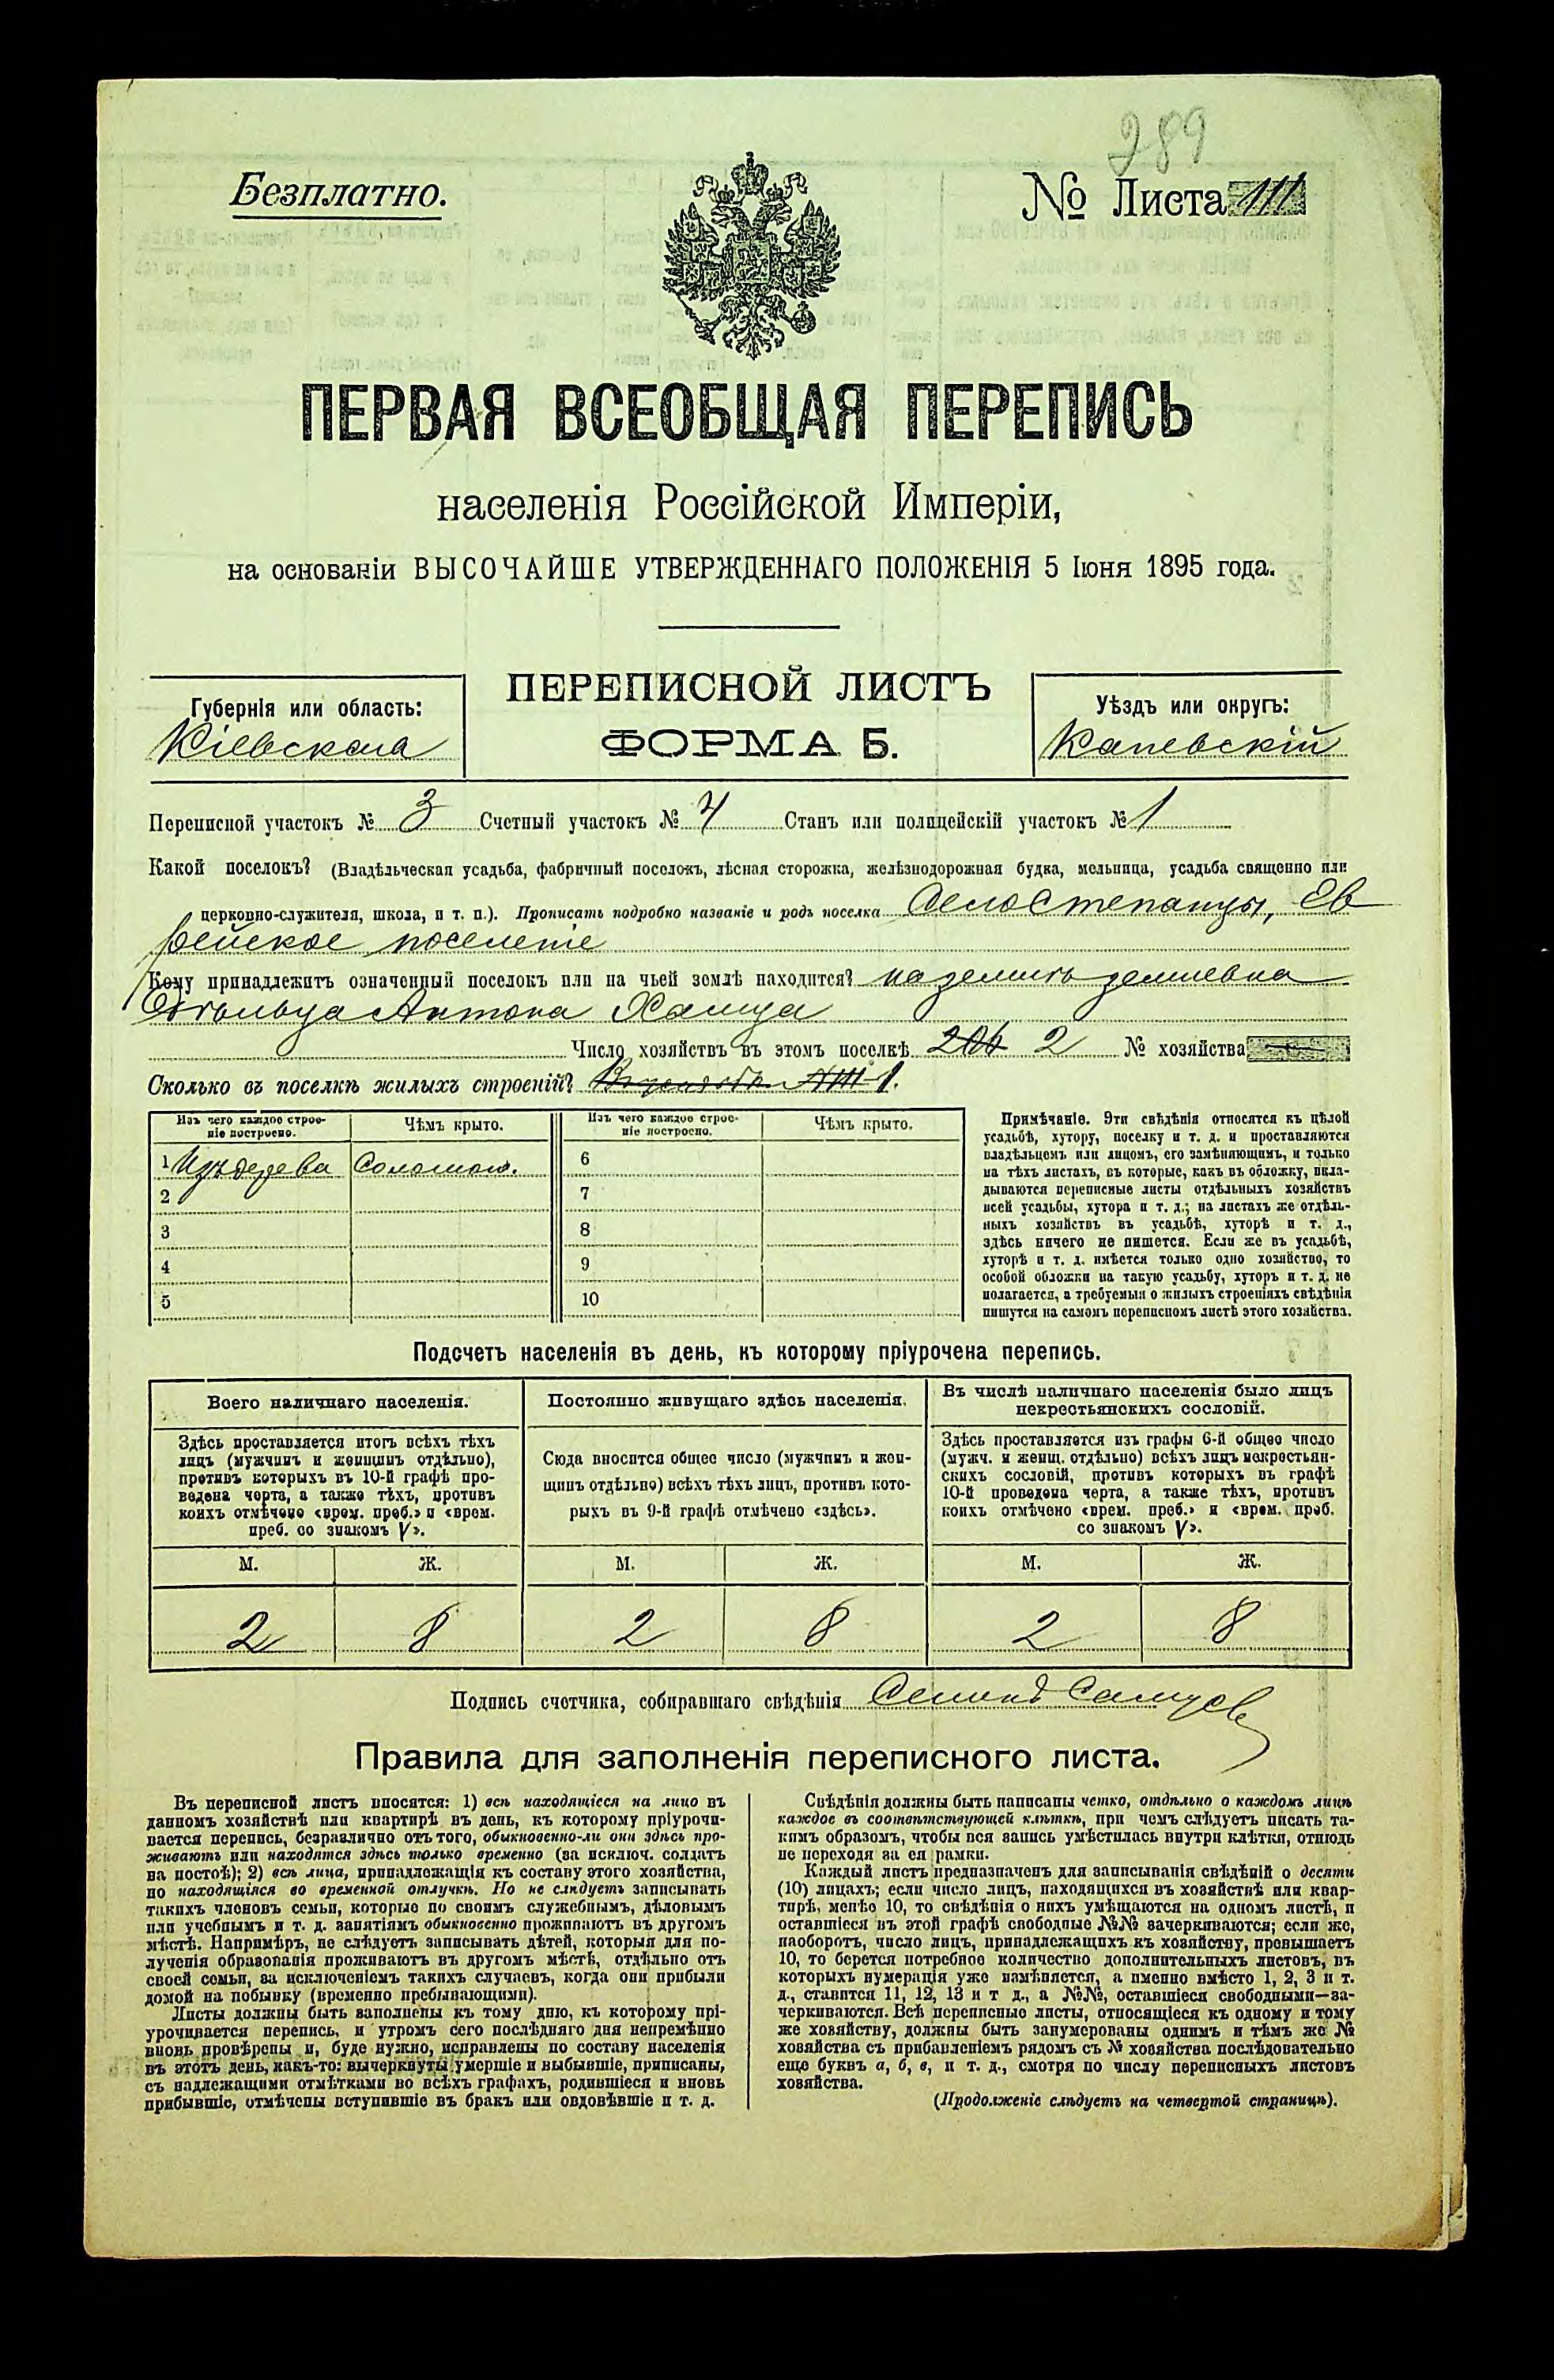 289
Безплатно.
№ Листа 111
ПЕРВАЯ ВСЕОБЩАЯ ПЕРЕПИСЬ
населенія Россійской Имперіи,
на основаніи ВЫСОЧАЙШЕ УТВЕРЖДЕННАГО ПОЛОЖЕНІЯ 5 Іюня 1895 года.
ПЕРЕПИСНОЙ ЛИСТЪ
ФОРМА Б.
Губернія или область:
Кіевская
Уѣздъ или округъ:
Каневскій
Переписной участокъ № 3 Счетный участокъ № 4 Станъ или полицейскій участокъ № 1
Какой поселокъ? (Владѣльческая усадьба, фабричный поселокъ, лѣсная сторожка, желѣзнодорожная будка, мельница, усадьба священно или
церковно-служителя, школа, и т. п.). Прописать подробно названіе и родъ поселка Село Степанцы, Ев
рейское поселеніе
Кому принадлежитъ означенный поселокъ или на чьей землѣ находится? на землѣ
Антона
Число хозяйствъ въ этомъ поселкѣ 206 2 № хозяйства
Сколько въ поселкѣ жилыхъ строеній? 1.
Изъ чего каждое строе-
ніе построено.
Чѣмъ крыто.
Изъ чего каждое строе-
ніе построено.
Чѣмъ крыто.
1 Изъ дерева Соломою. 6
2 7
3 8
4 9
5 10
Примѣчаніе. Эти свѣдѣнія относятся къ цѣлой
усадьбѣ, хутору, поселку и т. д. и проставляются
владѣльцемъ или лицомъ, его замѣняющимъ, и только
на тѣхъ листахъ, въ которые, какъ въ обложку, вкла-
дываются переписные листы отдѣльныхъ хозяйствъ
всей усадьбы, хутора и т. д.; на листахъ же отдѣль-
ныхъ хозяйствъ въ усадьбѣ, хуторѣ и т. д.,
здѣсь ничего не пишется. Если же въ усадьбѣ,
хуторѣ и т. д. имѣется только одно хозяйство, то
особой обложки на такую усадьбу, хуторъ и т. д. не
полагается, а требуемыя о жилыхъ строеніяхъ свѣдѣнія
пишутся на самомъ переписномъ листѣ этого хозяйства.
Подсчетъ населенія въ день, къ которому пріурочена перепись.
Всего наличнаго населенія.
Здѣсь проставляется итогъ всѣхъ тѣхъ
лицъ (мужчинъ и женщинъ отдѣльно),
противъ которыхъ въ 10-й графѣ про-
ведена черта, а также тѣхъ, противъ
коихъ отмѣчено «врем. преб.» и «врем.
преб. со знакомъ V».
Постоянно живущаго здѣсь населенія.
Сюда вносится общее число (мужчинъ и жен-
щинъ отдѣльно) всѣхъ тѣхъ лицъ, противъ кото-
рыхъ въ 9-й графѣ отмѣчено «здѣсь».
Въ числѣ наличнаго населенія было лицъ
некрестьянскихъ сословій.
Здѣсь проставляется изъ графы 6-й общее число
(мужч. и женщ. отдѣльно) всѣхъ лицъ некрестьян-
скихъ сословій, противъ которыхъ въ графѣ
10-й проведена черта, а также тѣхъ, противъ
коихъ отмѣчено «врем. преб.» и «врем. преб.
со знакомъ V».
М. Ж. М. Ж. М. Ж.
2 8 2 8 2 8
Подпись счетчика, собиравшаго свѣдѣнія
Правила для заполненія переписного листа.
Въ переписной листъ вносятся: 1) всѣ находящіеся на лицо въ
данномъ хозяйствѣ или квартирѣ въ день, къ которому пріурочи-
вается перепись, безразлично отъ того, обыкновенно-ли они здѣсь про-
живаютъ или находятся здѣсь только временно (за исключ. солдатъ
на постоѣ); 2) всѣ лица, принадлежащія къ составу этого хозяйства,
но находящіяся во временной отлучкѣ. Но не слѣдуетъ записывать
такихъ членовъ семьи, которые по своимъ служебнымъ, дѣловымъ
или учебнымъ и т. д. занятіямъ обыкновенно проживаютъ въ другомъ
мѣстѣ. Напримѣръ, не слѣдуетъ записывать дѣтей, которыя для по-
лученія образованія проживаютъ въ другомъ мѣстѣ, отдѣльно отъ
своей семьи, за исключеніемъ такихъ случаевъ, когда они прибыли
домой на побывку (временно пребывающими).
Листы должны быть заполнены къ тому дню, къ которому прі-
урочивается перепись, и утромъ сего послѣдняго дня непремѣнно
вновь провѣрены и, буде нужно, исправлены по составу населенія
въ этотъ день, какъ-то: вычеркнуты умершіе и выбывшіе, приписаны,
съ надлежащими отмѣтками во всѣхъ графахъ, родившіеся и вновь
прибывшіе, отмѣчены вступившіе въ бракъ или овдовѣвшіе и т. д.
Свѣдѣнія должны быть написаны четко, отдѣльно о каждомъ лицѣ
каждое въ соотвѣтствующей клѣткѣ, при чемъ слѣдуетъ писать та-
кимъ образомъ, чтобы вся запись умѣстилась внутри клѣтки, отнюдь
не переходя за ея рамки.
Каждый листъ предназначенъ для записыванія свѣдѣній о десяти
(10) лицахъ; если число лицъ, находящихся въ хозяйствѣ или квар-
тирѣ, менѣе 10, то свѣдѣнія о нихъ умѣщаются на одномъ листѣ, и
оставшіеся въ этой графѣ свободные №№ зачеркиваются; если же,
наоборотъ, число лицъ, принадлежащихъ къ хозяйству, превышаетъ
10, то берется потребное количество дополнительныхъ листовъ, въ
которыхъ нумерація уже измѣняется, а именно вмѣсто 1, 2, 3 и т.
д., ставится 11, 12, 13 и т д., а №№, оставшіеся свободными—за-
черкиваются. Всѣ переписные листы, относящіеся къ одному и тому
же хозяйству, должны быть занумерованы однимъ и тѣмъ же №
хозяйства съ прибавленіемъ рядомъ съ № хозяйства послѣдовательно
еще буквъ а, б, в, и т. д., смотря по числу переписныхъ листовъ
хозяйства.
(Продолженіе слѣдуетъ на четвертой страницѣ).